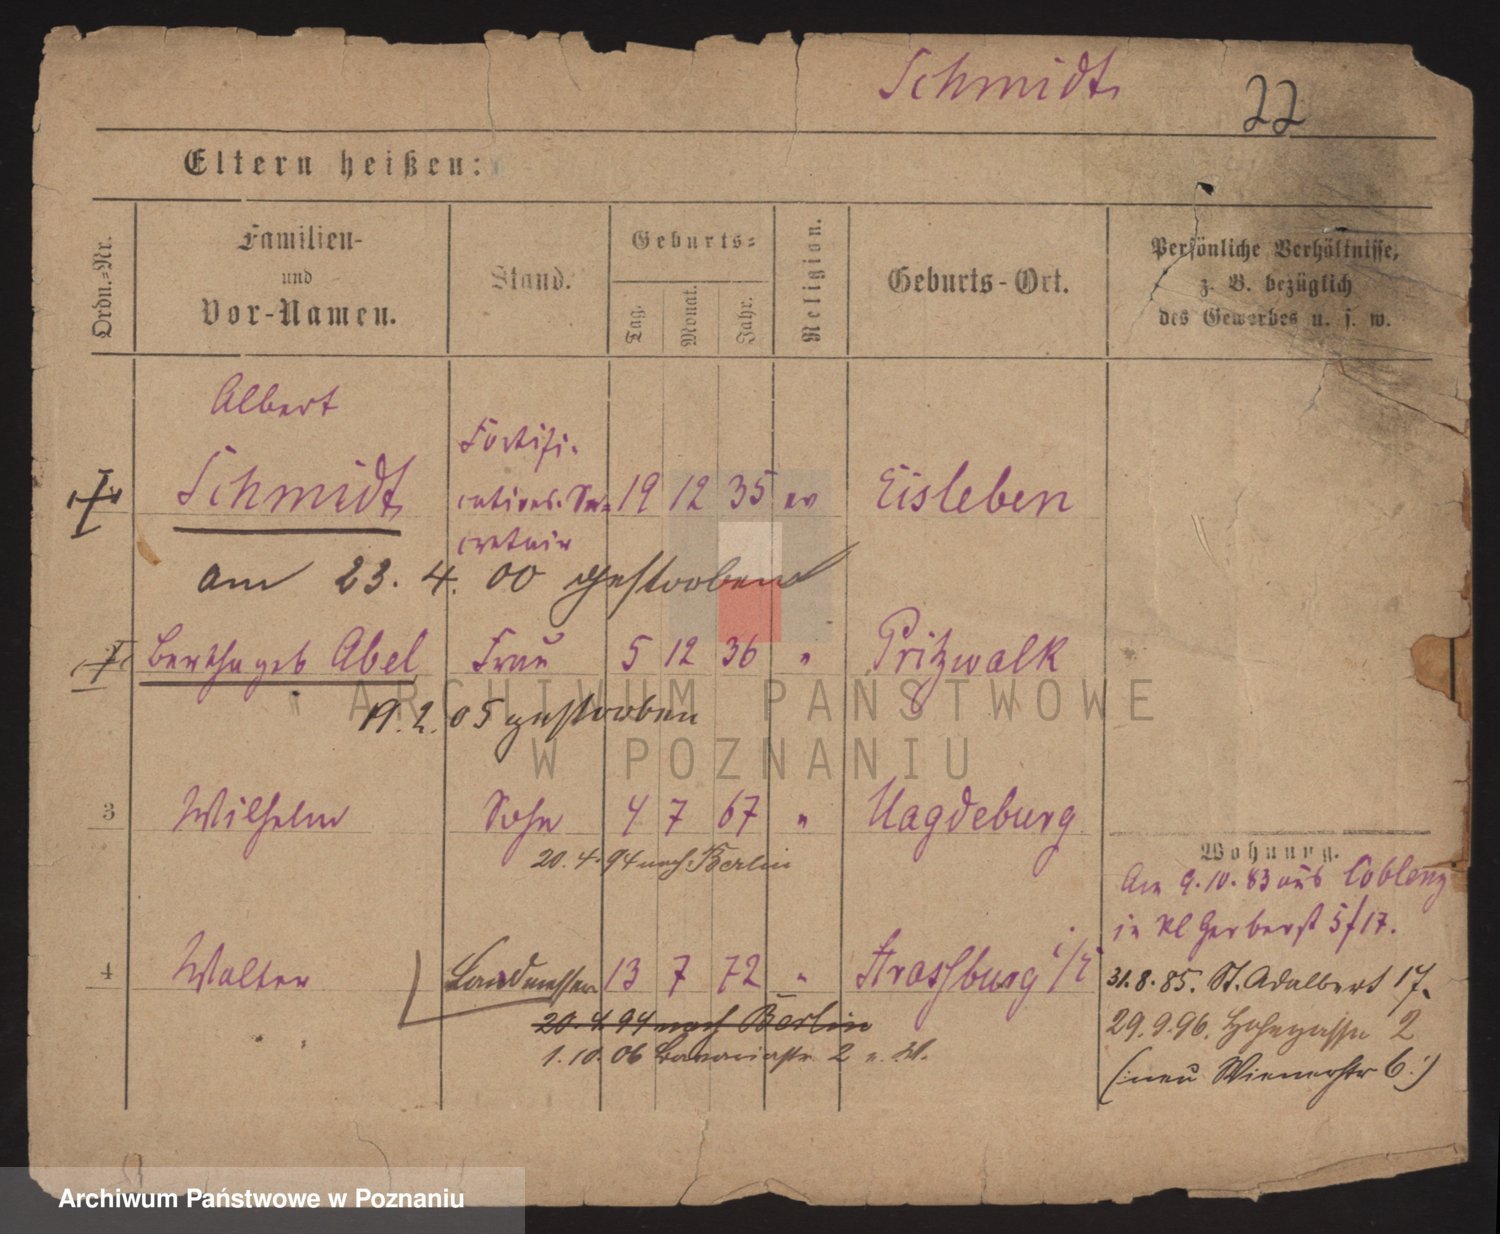 Schmidt
22
Eltern heißen:
Ordn.-Nr.
Familien-
und
Vor-Namen.
Stand.
Geburts-
Tag.
Monat.
Jahr.
Religion.
Geburts-Ort.
Persönliche Verhältnisse,
z. B. bezüglich
des Gewerbes u. s. w.
Albert
Schmidt
Fortifi-
cations-Se-
cretair
19 12 35 ev Eisleben
am 23. 4. 00 gestorben
Bertha geb Abel Frau 5 12 36 " Pritzwalk
19. 2. 05 gestorben
ARCHIWUM PAŃSTWOWE
W POZNANIU
3 Wilhelm Sohn 4 7 67 " Magdeburg
20. 4. 94 nach Berlin
4 Walter Landmesser 13 7 72 " Strassburg i/E
20. 4. 94 nach Berlin
1. 10. 06 2
Wohnung.
Am 9. 10. 83 aus Coblenz
in Kl Gerberst 5/17.
31. 8. 85. St. Adalbert 17.
29. 9. 96. Hohegasse 2
(:neu Wienerstr 6:)
Archiwum Państwowe w Poznaniu